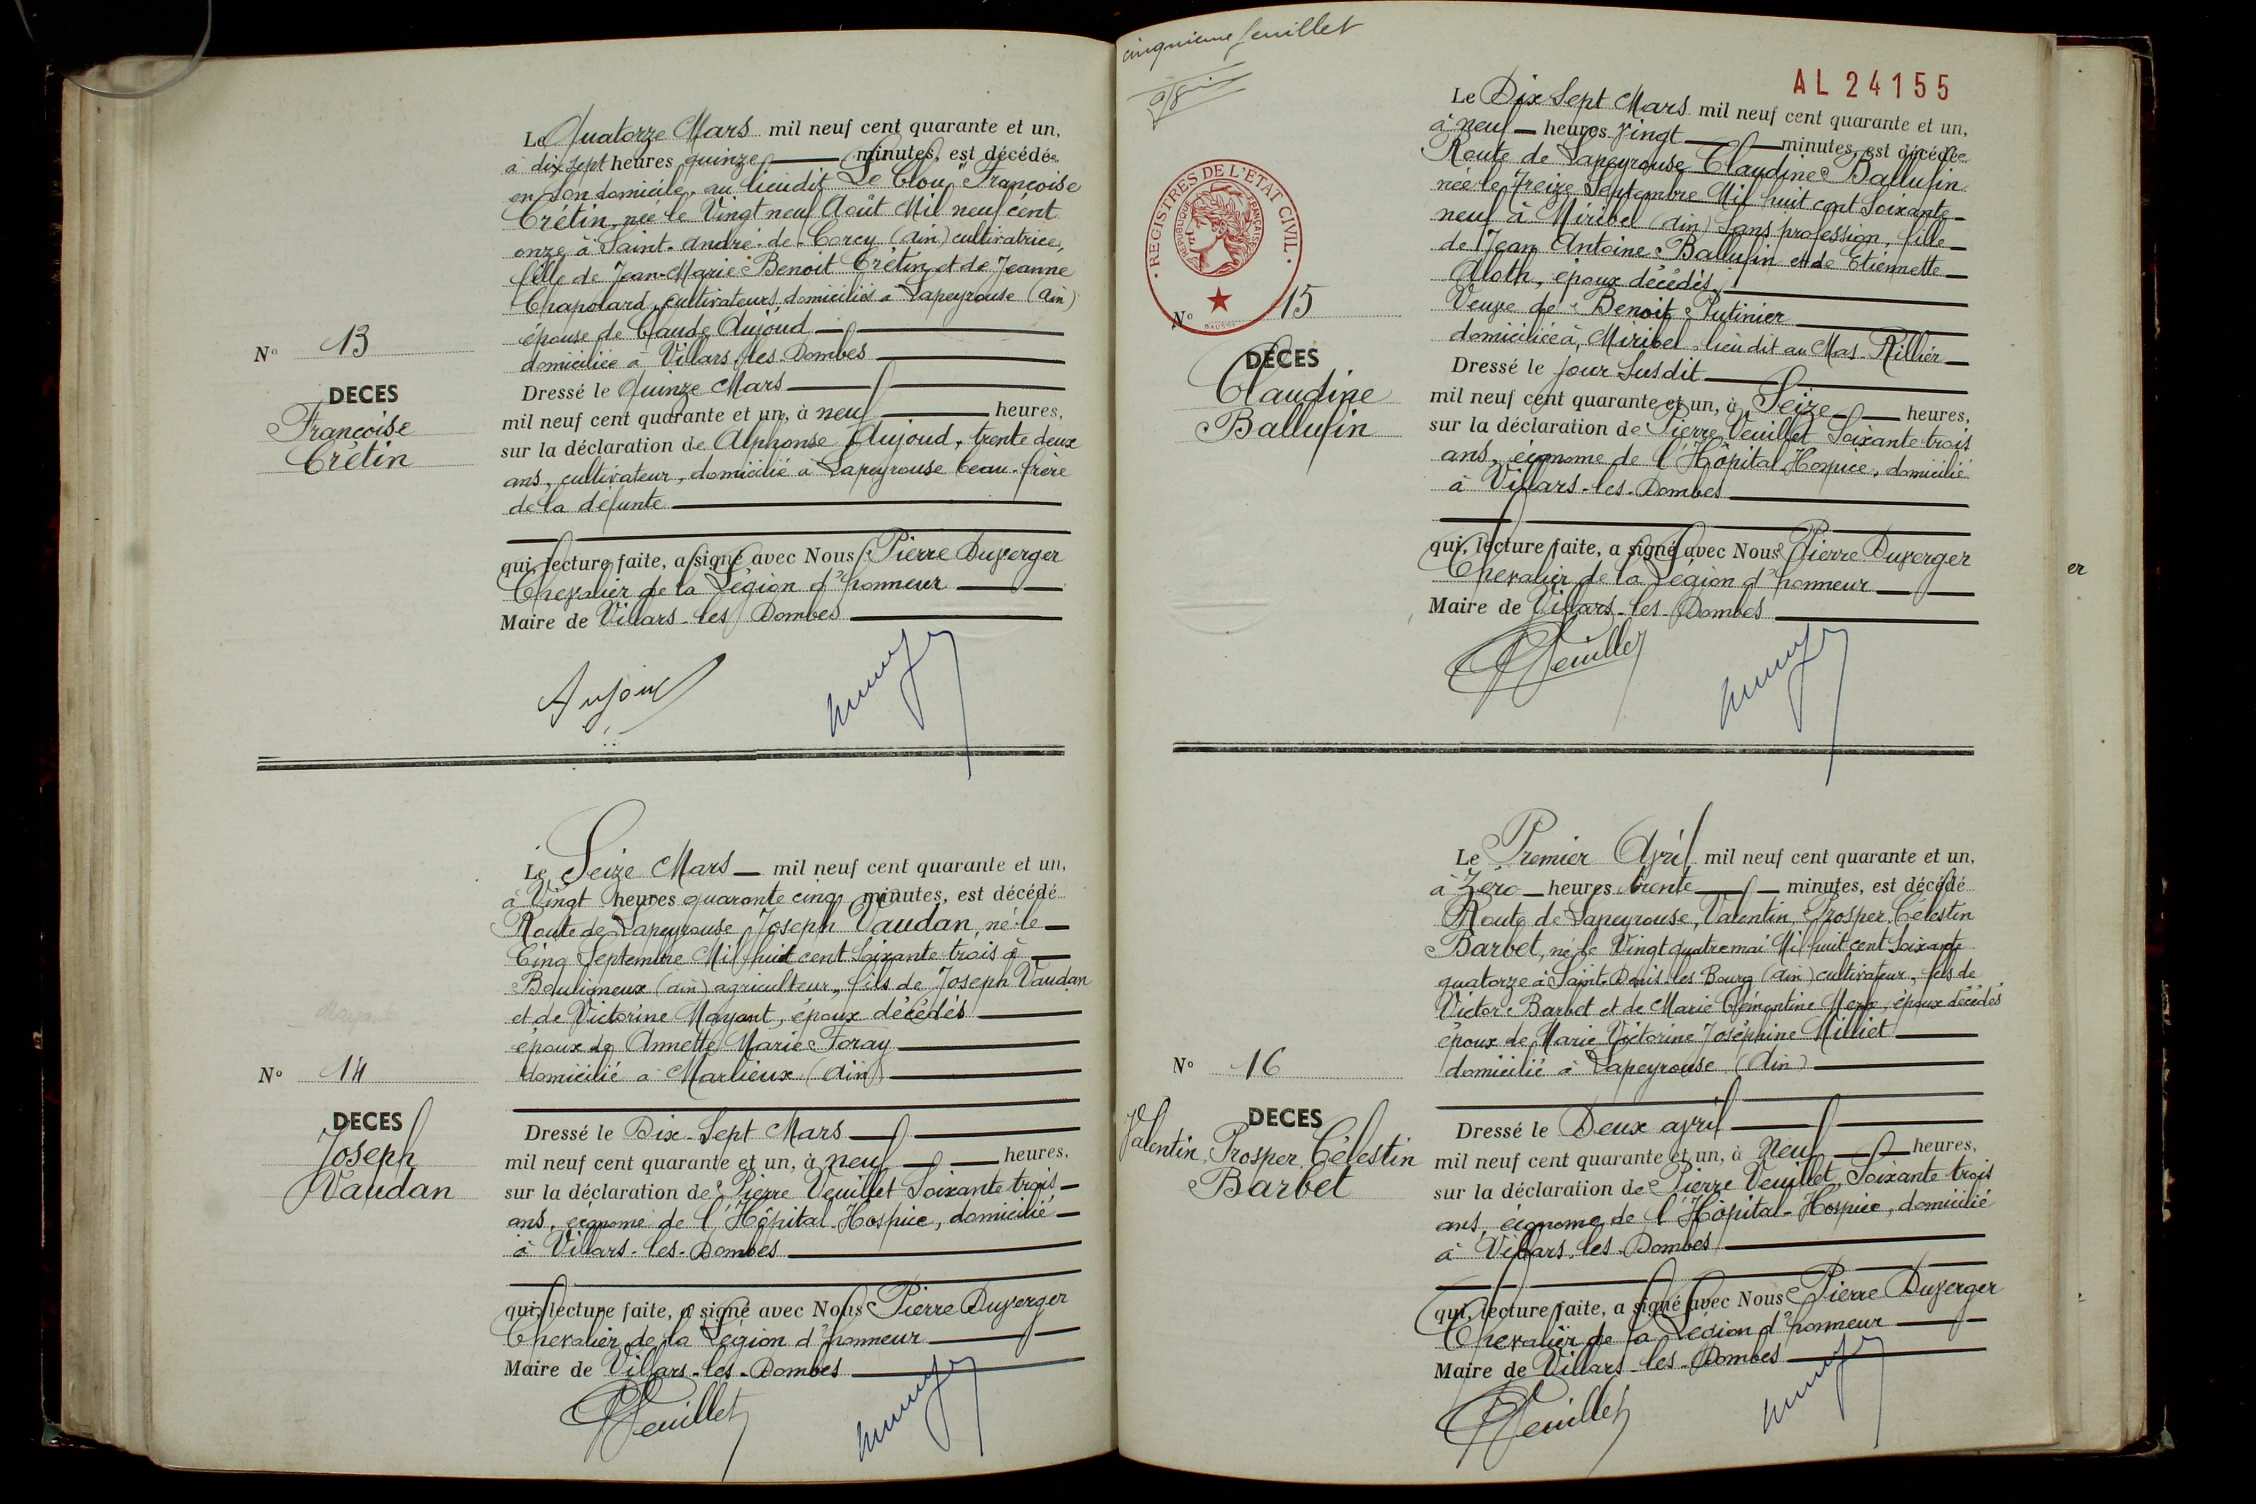 Le Quatorze Mars mil neuf cent quarante et un,
à dix sept heures quinze minutes, est décédée
en son domicile, au lieu dit "Le Clou" Françoise
Crétin, née le Vingt neuf Août Mil neuf cent
onze à Saint-André-de-Corcy (Ain) cultivatrice,
fille de Jean-Marie Benoit Crétin et de Jeanne
Chapolard, cultivateurs domiciliés à Lapeyrouse (Ain)
épouse de Claude Aujoud
domiciliée à Villars-les-Dombes
N° 13
DECES
Françoise
Crétin
Dressé le Quinze Mars
mil neuf cent quarante et un, à neuf heures,
sur la déclaration de Alphonse Aujoud, trente deux
ans, cultivateur, domicilié à Lapeyrouse beau-frère
de la défunte
qui, lecture faite, a signé avec Nous Pierre Duverger
Chevalier de la Légion d'honneur
Maire de Villars-les-Dombes
Aujoud
Le Seize Mars mil neuf cent quarante et un,
à Vingt heures quarante cinq minutes, est décédé
Route de Lapeyrouse Joseph Vaudan, né le
Cinq Septembre Mil huit cent Soixante trois à
Bouligneux (Ain) agriculteur, fils de Joseph Vaudan
et de Victorine Mayant, époux décédés
époux de Annette Marie Foray
domicilié à Marlieux (Ain)
N° 14
DECES
Joseph
Vaudan
Dressé le Dix-Sept Mars
mil neuf cent quarante et un, à neuf heures,
sur la déclaration de Pierre Veuillet Soixante trois
ans, économe de l'Hôpital-Hospice, domicilié
à Villars-les-Dombes
qui, lecture faite, a signé avec Nous Pierre Duverger
Chevalier de la Légion d'honneur
Maire de Villars-les-Dombes
PVeuillet
cinquième feuillet
AL 24155
Le Dix Sept Mars mil neuf cent quarante et un,
à neuf heures Vingt minutes, est décédée
Route de Lapeyrouse Claudine Ballufin
née le Treize Septembre Mil huit cent Soixante
neuf à Miribel (Ain) Sans profession, fille
de Jean Antoine Ballufin et de Etiennette
Aloth, époux décédés
Veuve de Benoit Putinier
domiciliée à Miribel, lieu dit au Mas-Rillier
REGISTRES DE L'ETAT CIVIL
REPUBLIQUE FRANCAISE
N° 15
DECES
Claudine
Ballufin
Dressé le jour Susdit
mil neuf cent quarante et un, à Seize heures,
sur la déclaration de Pierre Veuillet Soixante trois
ans, économe de l'Hôpital Hospice, domicilié
à Villars-les-Dombes
qui, lecture faite, a signé avec Nous Pierre Duverger
Chevalier de la Légion d'honneur
Maire de Villars-les-Dombes
PVeuillet
er
Le Premier Avril mil neuf cent quarante et un,
à Zéro heures trente minutes, est décédé
Route de Lapeyrouse, Valentin, Prosper, Célestin
Barbet, né le Vingt quatre mai Mil huit cent Soixante
quatorze à Saint-Denis-les Bourg (Ain) cultivateur, fils de
Victor Barbet et de Marie Clémentine époux décédés
époux de Marie Victorine Joséphine Milliet
domicilié à Lapeyrouse (Ain)
N° 16
DECES
Valentin, Prosper, Célestin
Barbet
Dressé le Deux avril
mil neuf cent quarante et un, à Neuf heures,
sur la déclaration de Pierre Veuillet, Soixante trois
ans, économe de l'Hôpital-Hospice, domicilié
à Villars-les-Dombes
qui, lecture faite, a signé avec Nous Pierre Duverger
Chevalier de la Légion d'honneur
Maire de Villars-les-Dombes
PVeuillet